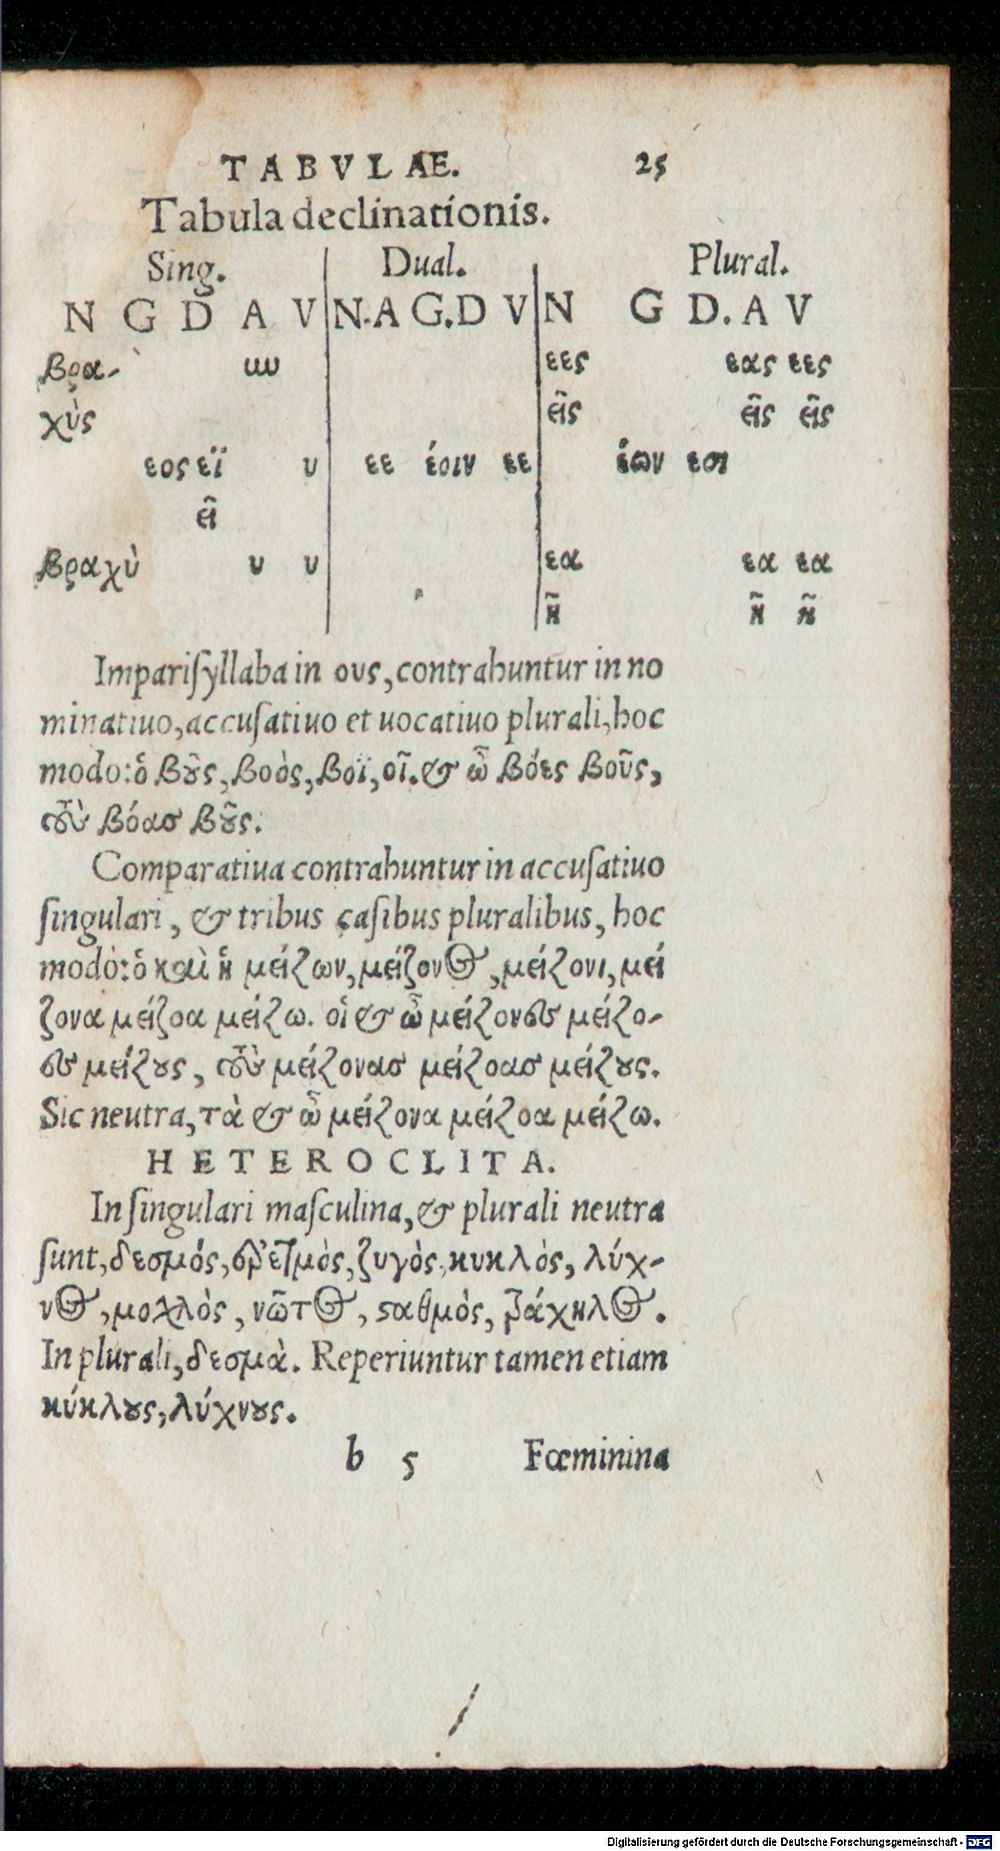 TABVLAE. 25
Tabula declinationis.
Sing. Dual. Plural.
N G D A V N.A G.D V N G D. A V
βρα- υν εες εας εες
χὺς εῖς εῖς εῖς
εος εϊ υ εε έοιν εε έων εσι
εῖ
βραχὺ υ υ εα εα εα
ῆ ῆ ῆ
Impariſyllaba in ους, contrahuntur in no
minatiuo, accuſatiuo et uocatiuo plurali, hoc
modo: ὁ βοῦς, βοὸς, βοῒ, οῖ. & ὦ βόες βοῦς,
τοὺς βόας βοῦς.
Comparatiua contrahuntur in accuſatiuo
ſingulari, & tribus caſibus pluralibus, hoc
modò: ὁ καὶ ἡ μείζων, μείζονος, μείζονι, μεί
ζονα μείζοα μείζω. οἱ & ὦ μείζονες μείζο-
ες μείζους, τοὺς μείζονας μείζοας μείζους.
Sic neutra, τὰ & ὦ μείζονα μείζοα μείζω.
HETEROCLITA.
In ſingulari maſculina, & plurali neutra
ſunt, δεσμός, ἐρετμὸς, ζυγὸς, κυκλὸς, λύχ-
νος, μοχλὸς, νῶτος, σταθμὸς, τράχηλος.
In plurali, δεσμὰ. Reperiuntur tamen etiam
κύκλους, λύχνους.
b 5 Fœminina
Digitalisierung gefördert durch die Deutsche Forschungsgemeinschaft - DFG